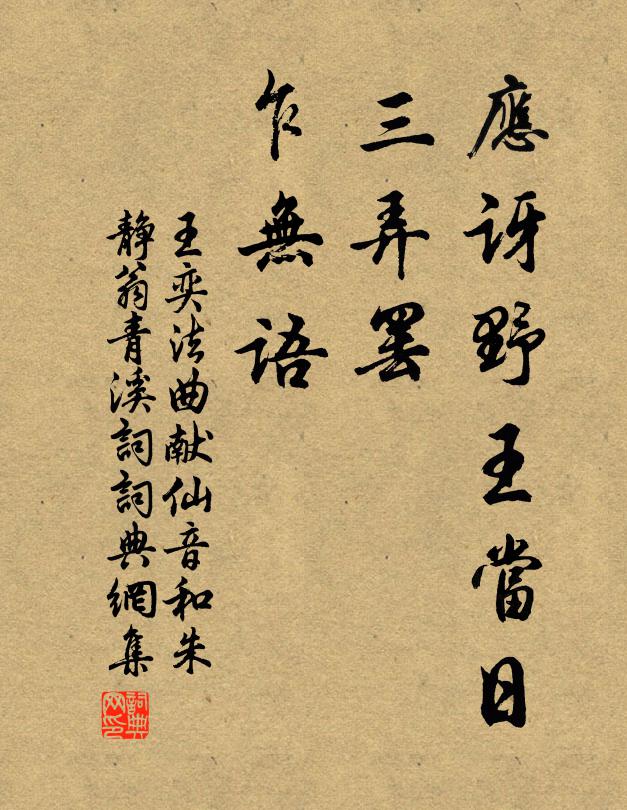 應訝野王當日
三弄罷
乍無語
王奕法曲献仙音和朱
靜翁青溪詞詞典網集
詞典网印